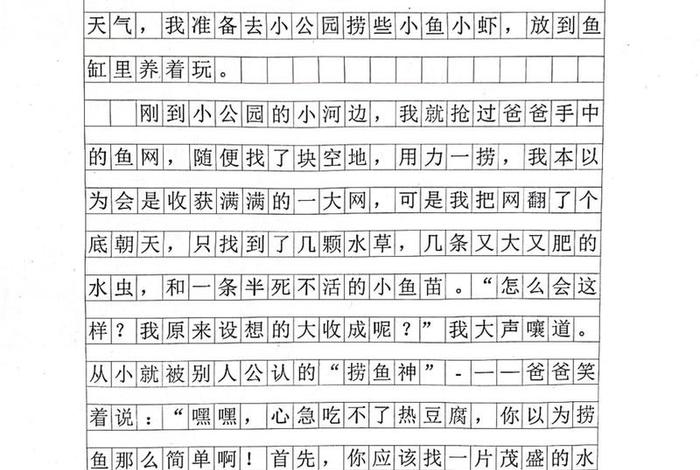 天气，我准备去小公园捞些小鱼小虾，放到鱼
缸里养着玩。
刚到小公园的小河边，我就抢过爸爸手中
的鱼网，随便找了块空地，用力一捞，我本以
为会是收获满满的一大网，可是我把网翻了个
底朝天，只找到了几颗水草，几条又大又肥的
水虫，和一条半死不活的小鱼苗。“怎么会这
样？我原来设想的大收成呢？”我大声嚷道。
从小就被别人公认的“捞鱼神”-——爸爸笑
着说：“嘿嘿，心急吃不了热豆腐，你以为捞
鱼那么简单啊！首先，你应该找一片茂盛的水